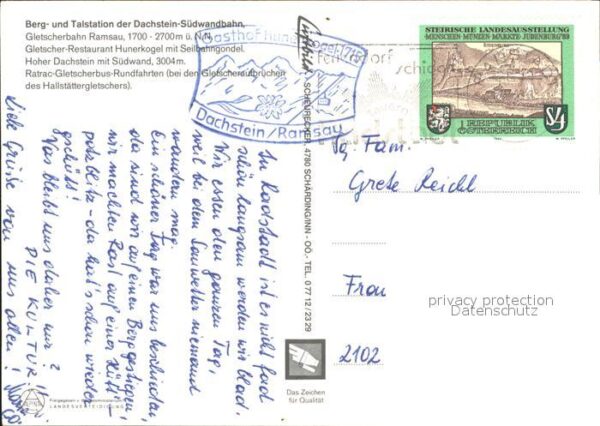 Berg- und Talstation der Dachstein-Südwandbahn,
Gletscherbahn Ramsau, 1700 - 2700m ü. N.N.
Gletscher-Restaurant Hunerkogel mit Seilbahngondel.
Hoher Dachstein mit Südwand, 3004m.
Ratrac-Gletscherbus-Rundfahrten (bei den Gletscheraufbrüchen
des Hallstättergletschers).
Gasthof Hunerkogel 1715
Dachstein/Ramsau
STEIRISCHE LANDESAUSSTELLUNG
MENSCHEN·MÜNZEN·MÄRKTE·JUDENBURG '89
REPUBLIK
ÖSTERREICH
S4
4780 SCHÄRDING/INN - OÖ. - TEL. 07712/2329
In Radstadt ist es nicht fad
schön langsam werden wir blad.
Wir essen den ganzen Tag,
weil bei dem Sauwetter niemand
wandern mag.
Ein schöner Tag war uns beschieden,
da sind wir auf einen Berg gestiegen,
wir machten Rast auf einer Hütt'-
potz blitz - da hat's schon wieder
geschütt!
Was bleibt uns daher nur?
DIE KULTUR!
Liebe Grüße von uns allen!
Fam.
Grete Reichl
Frau
2102
privacy protection
Datenschutz
Das Zeichen
für Qualität
LANDESVERTEIDIGUNG